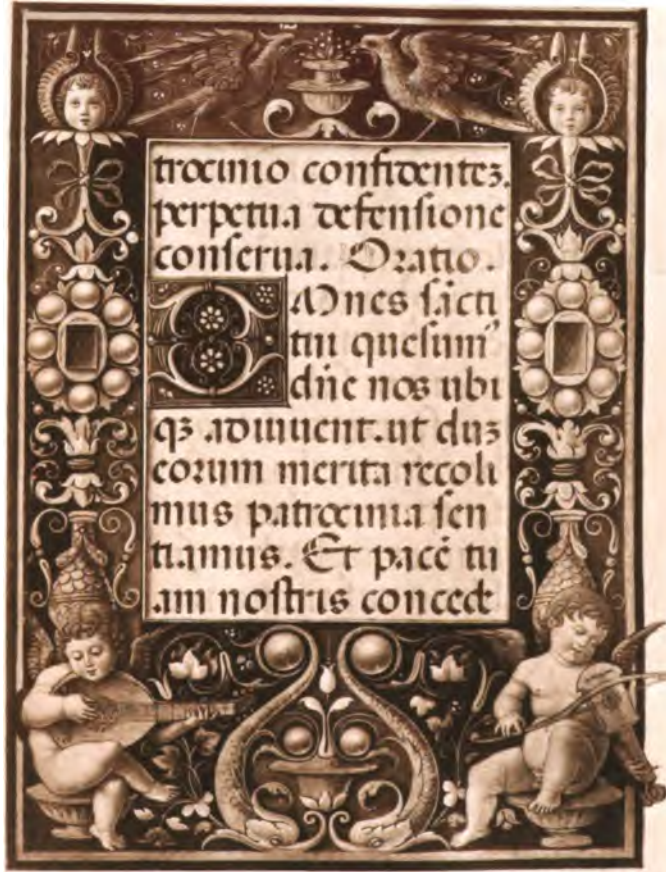 trocinio confidenteʒ.
perpetua defensione
conserua. Oratio.
OMnes sācti
tui quesumꝰ
dn̄e nos ubi
qꝫ adiuuent. ut duʒ
eorum merita recoli
mus patrocinia sen
tiamus. Et pacē tu
am nostris concede